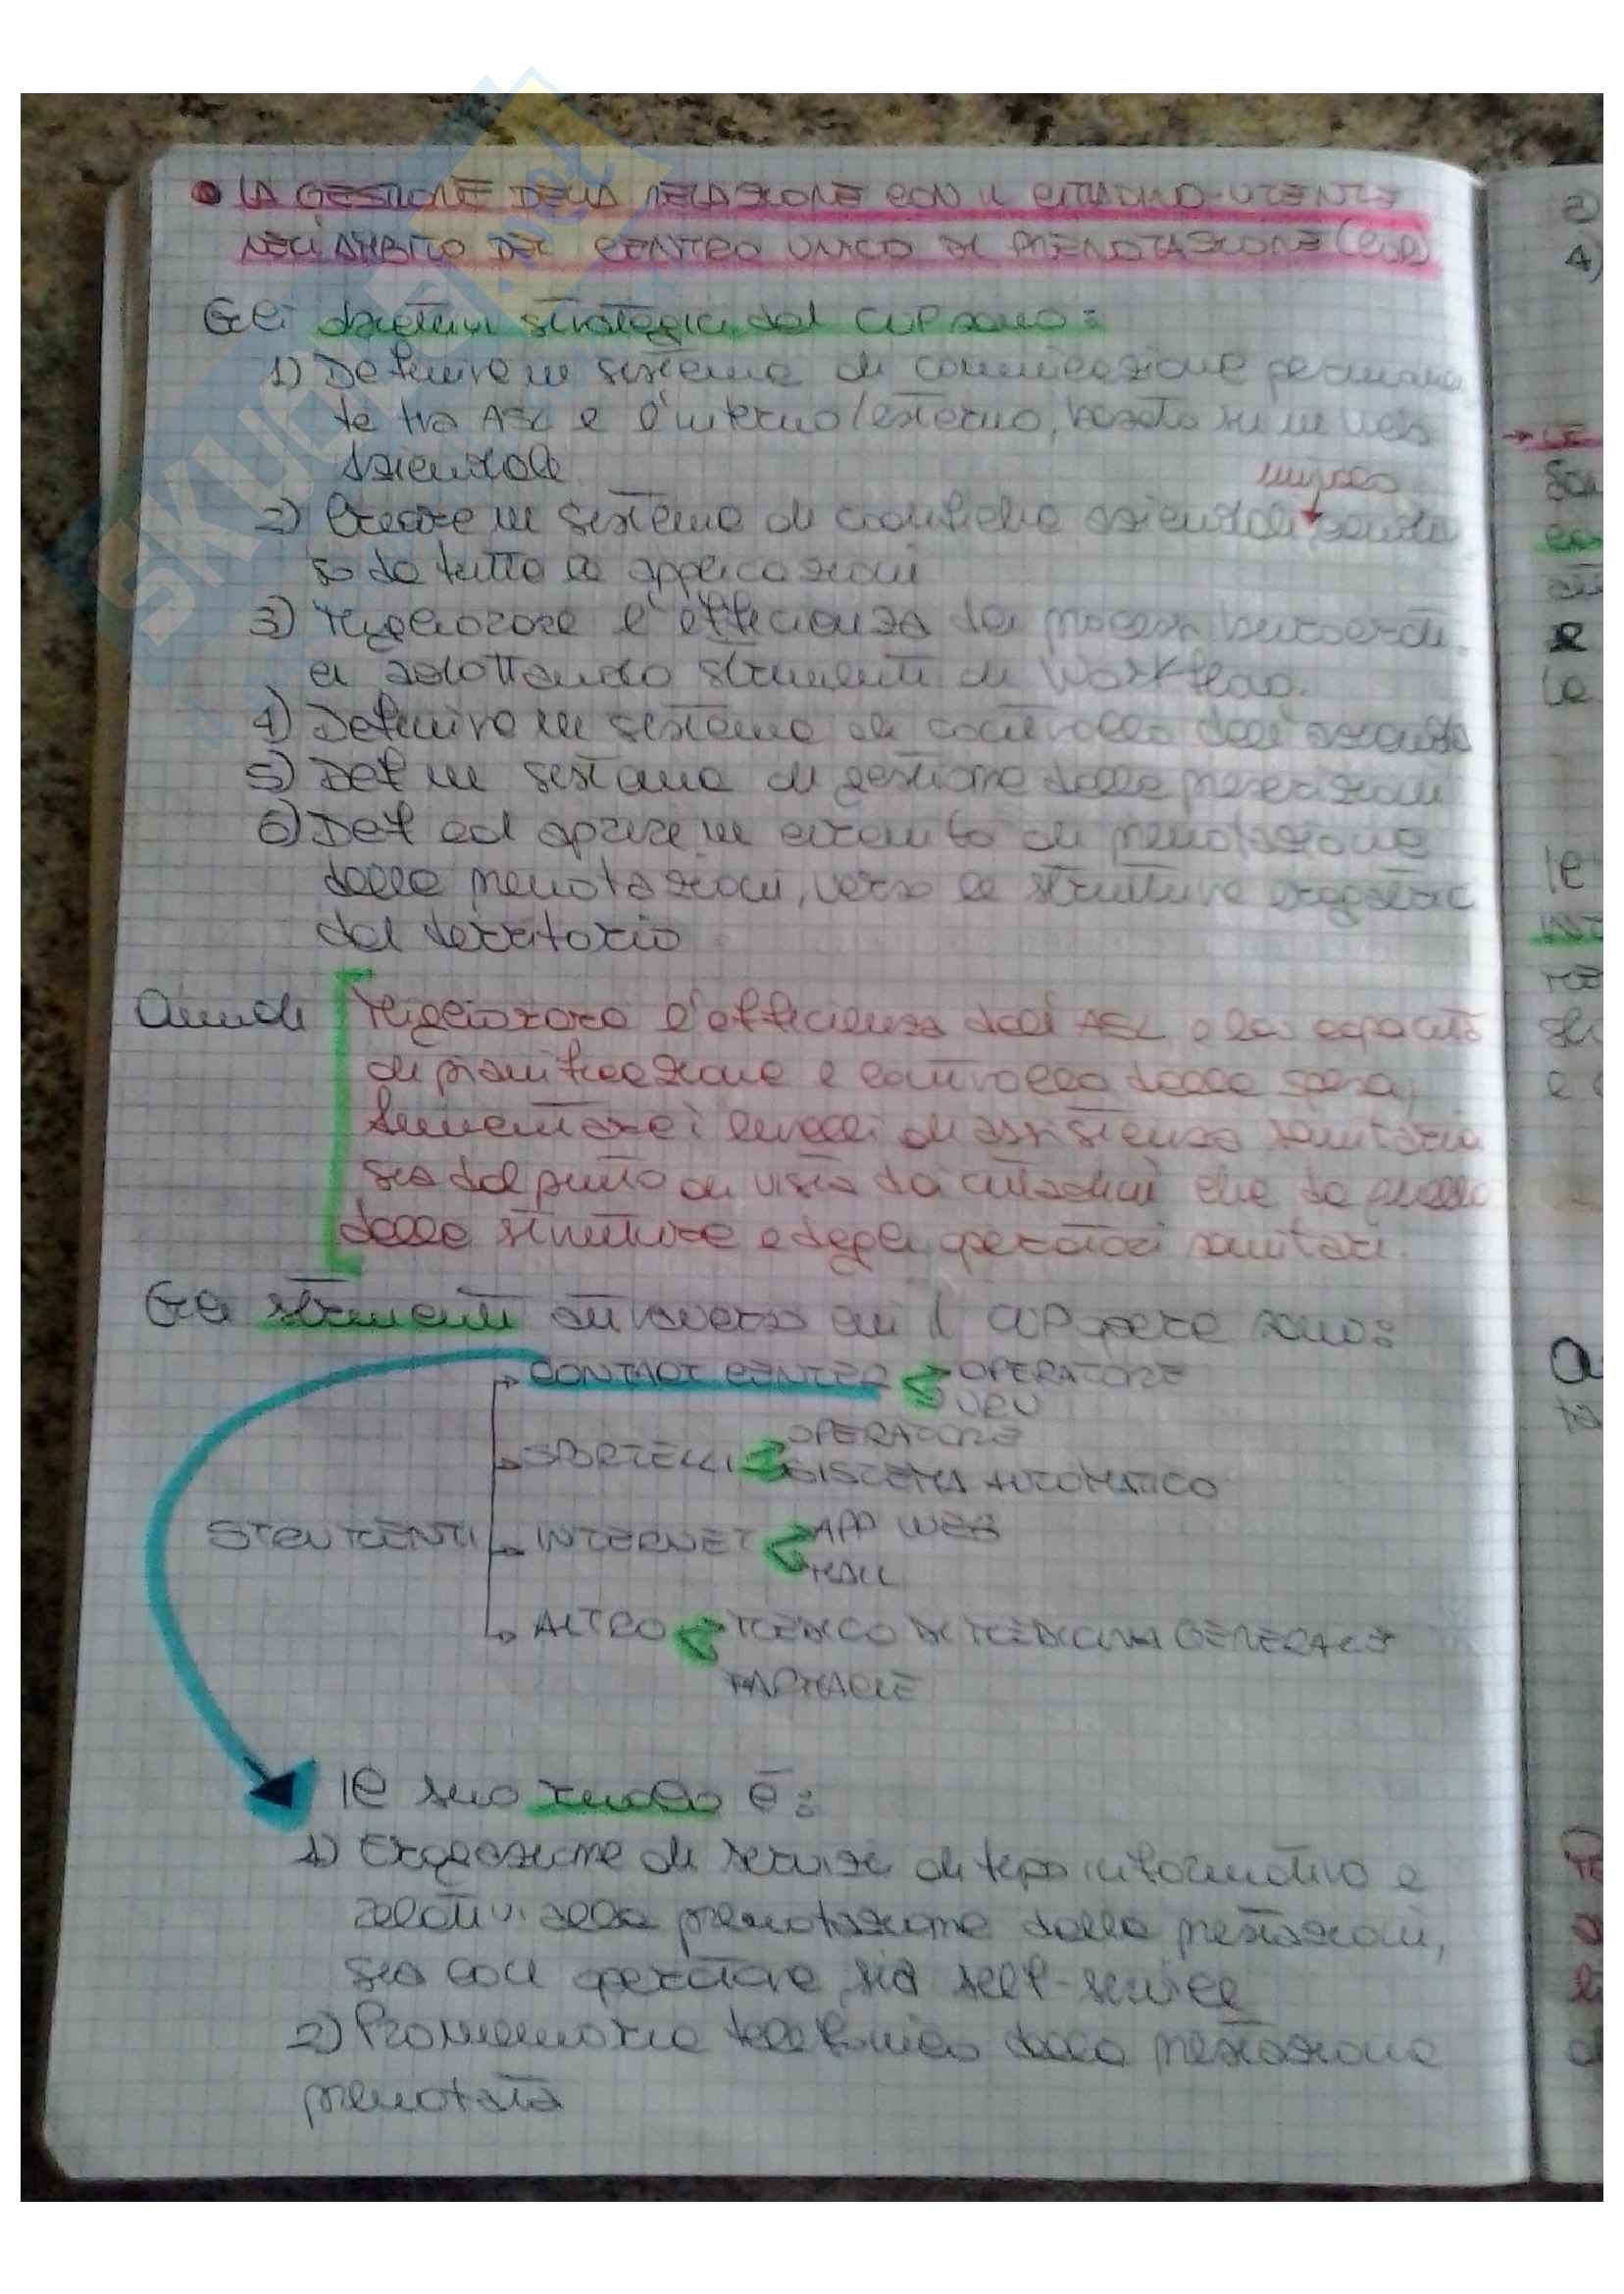 LA GESTIONE DELLA RELAZIONE CON IL CITTADINO-UTENTE
NELL'AMBITO DEL CENTRO UNICO DI PRENOTAZIONE (CUP)
Gli obiettivi strategici del CUP sono:
1) Definire un sistema di comunicazione permanen
te tra ASL e l'interno/esterno, basato su un web
aziendale.
univoco
2) Creare un sistema di codifiche aziendali, condivi
so da tutte le applicazioni
3) Migliorare l'efficienza dei processi burocrati
ci adottando strumenti di Workflow.
4) Definire un sistema di controllo dell'
5) Def un sistema di gestione delle prescrizioni
6) Def ed aprire un circuito di prenotazione
delle prenotazioni, verso le strutture erogatrici
del territorio.
Quindi Migliorare l'efficienza dell'ASL e la capacità
di pianificazione e controllo della spesa,
Aumentare i livelli di assistenza sanitaria
sia dal punto di vista dei cittadini che da quello
delle strutture e degli operatori sanitari.
Gli strumenti attraverso cui il CUP opera sono:
CONTACT CENTER OPERATORE
VRU
OPERATORE
SPORTELLI SISTEMA AUTOMATICO
STRUMENTI INTERNET APP WEB
MAIL
ALTRO MEDICO DI MEDICINA GENERALE
FARMACIE
Il suo ruolo è:
1) Erogazione di servizi di tipo informativo e
relativi alla prenotazione delle prestazioni,
sia con operatore, sia self-service
2) Promemoria telefonico della prestazione
prenotata
2)
4)
SKUOLA.net